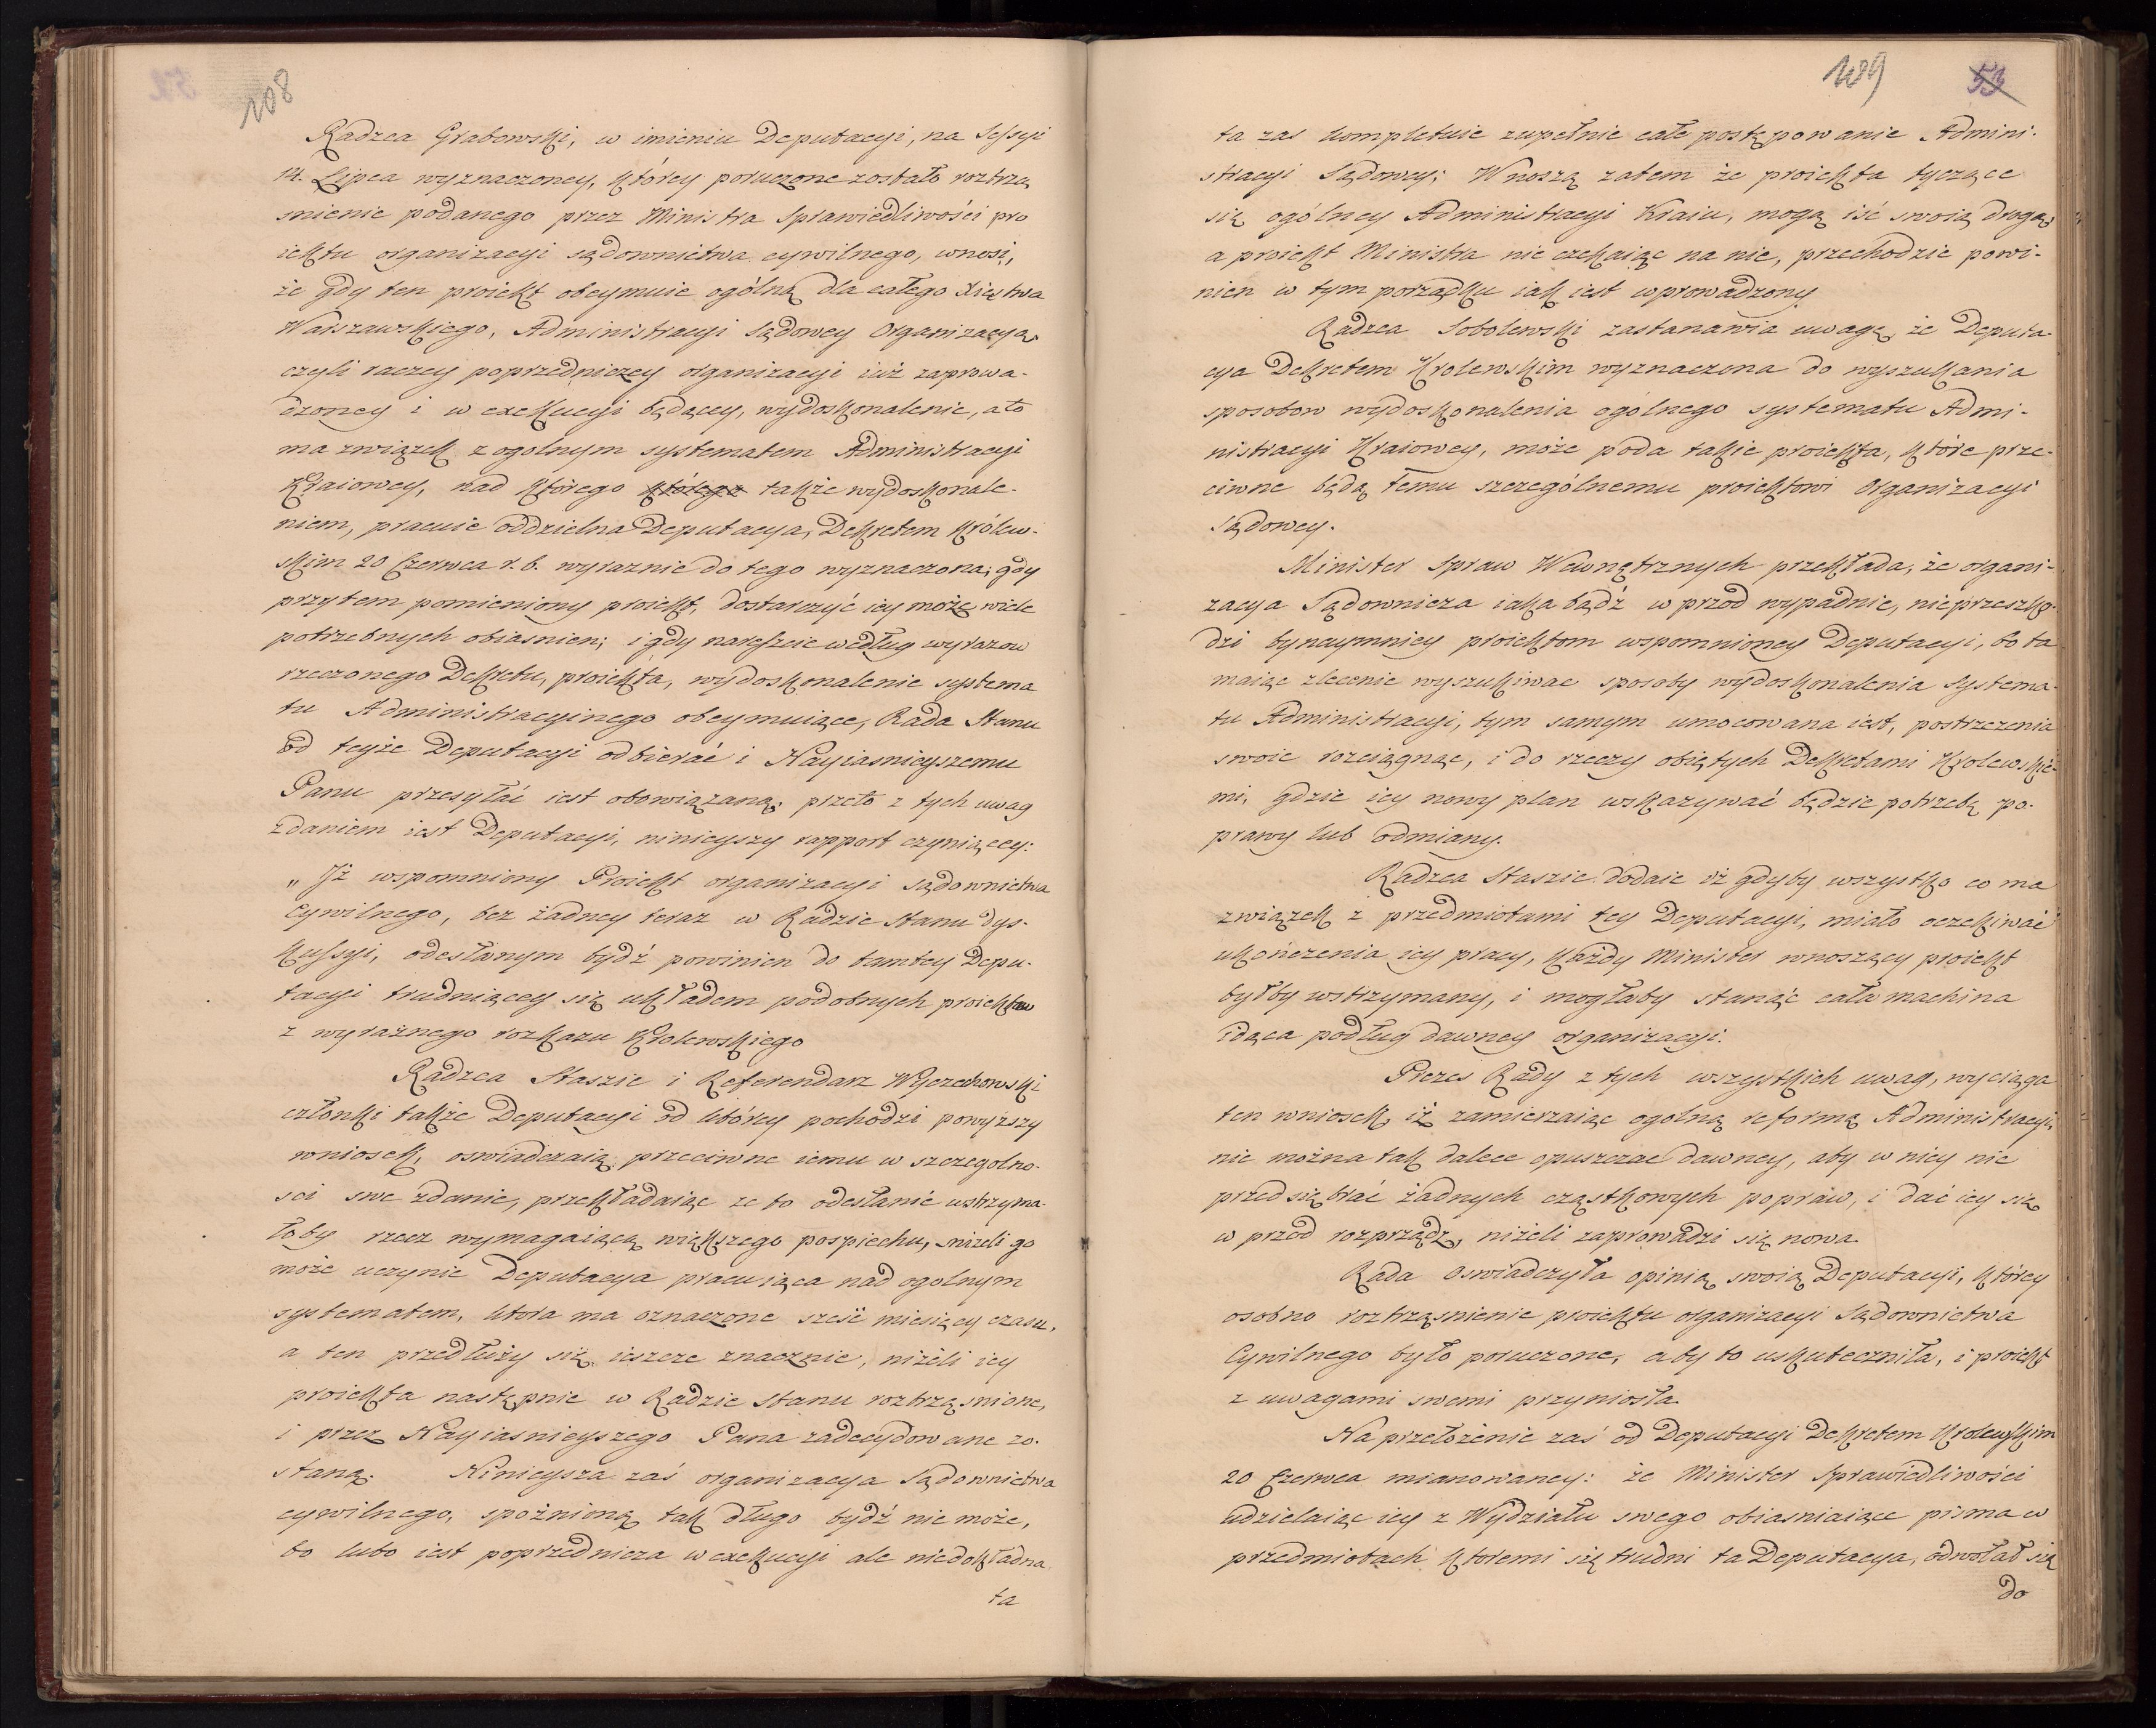 108
Radzca Grabowski, w imieniu Deputacyi, na Sessyi
14. Lipca wyznaczoney, którey poruczone zostało roztrzą
śnienie podanego przez Ministra Sprawiedliwości pro
iektu organizacyi sądownictwa cywilnego, wnosi,
że gdy ten proiekt obeymuie ogólną dla całego Xięstwa
Warszawskiego, Administracyi Sądowey Organizacyą,
czyli raczey poprzedniczey organizacyi iuż zaprowa-
dzoney i w exekucyi będącey, wydoskonalenie, a to
ma związek z ogolnym systematem Administracyi
Kraiowey, nad którego którego także wydoskonale-
niem, pracuie oddzielna Deputacya, Dekretem Królew-
skim 20 Czerwca r. b. wyraznie do tego wyznaczona; gdy
przytem pomieniony proiekt, dostarczyć iey może wiele
potrzebnych obiasnien; i gdy nareszcie według wyrazow
rzeczonego Dekretu, proiekta, wydoskonalenie systema
tu Administracyinego obeymuiące, Rada Stanu
od teyże Deputacyi odbierać i Nayiasnieyszemu
Panu przesyłać iest obowiązaną; przeto z tych uwag
zdaniem iest Deputacyi, ninieyszy rapport czyniącey:
„Iż wspomniony Proiekt organizacyi sądownictwa
Cywilnego, bez żadney teraz w Radzie Stanu dys-
kussyi, odesłanym bydź powinien do tamtey Depu-
tacyi trudniącey się układem podobnych proiektow
z wyraźnego rozkazu Krolewskiego
Radzca Staszic i Referendarz Wyczechowski
członki także Deputacyi od którey pochodzi powyższy
wniosek, oswiadczaią przeciwne iemu w szczegolno-
sci swe zdanie, przekładaiąc ze to odesłanie wstrzyma-
łoby rzecz wymagaiącą większego pospiechu, niżeli go
może uczynic Deputacya pracuiąca nad ogolnym
systematem, ktora ma oznaczone sześć miesięcy czasu,
a ten przedłuży się ieszcze znacznie, niżeli iey
proiekta następnie w Radzie Stanu roztrząśnione,
i przez Nayiasnieyszego Pana zadecydowane zo-
staną. Ninieysza zaś organizacya Sądownictwa
cywilnego, spożnioną tak długo bydź nie może,
bo lubo iest poprzednicza w exekucyi ale niedokładna
ta
109
53
ta zas kompletuie zupełnie całe postępowanie Admini-
stracyi Sądowey; Wnoszą zatem że proiekta tyczące
się ogólney Administracyi Kraiu, mogą iść swoią drogą,
a proiekt Ministra nie czekaiąc na nie, przechodzic powi-
nien w tym porządku iak iest wprowadzony
Radzca Sobolewski zastanawia uwagę, że Deputa-
cya Dekretem Krolewskim wyznaczona do wyszukania
sposobow wydoskonalenia ogólnego systematu Admi-
nistracyi Kraiowey, może poda takie proiekta, które prze-
ciwne będą temu szczególnemu proiektowi Organizacyi
Sądowey.
Minister Spraw Wewnętrznych przekłada, że organi-
zacya Sądownicza iaka bądź w przod wypadnie, nieprzeszko-
dzi bynaymniey proiektom wspomnioney Deputacyi, bo ta
maiąc zlecenie wyszukiwac sposoby wydoskonalenia systema-
tu Administracyi, tym samym umocowana iest, postrzezenia
swoie rozciągnąc, i do rzeczy obiętych Dekretami Krolewskie-
mi, gdzie iey nowy plan wskazywać będzie potrzebę po-
prawy lub odmiany.
Radzca Staszic dodaie iż gdyby wszystko co ma
związek z przedmiotami tey Deputacyi, miało oczekiwać
ukończenia iey pracy, każdy Minister wnoszący proiekt
byłby wstrzymany, i mogłaby stanąć cała machina
idąca podług dawney organizacyi.
Prezes Rady z tych wszystkich uwag, wyciąga
ten wniosek, iż zamierzaiąc ogolną reformę Administracyi,
nie można tak dalece opuszczac dawney, aby w niey nie
przedsiębrać żadnych cząstkowych popraw, i dać iey się
w przod rozprządz, niżeli zaprowadzi się nowa.
Rada oswiadczyła opinią swoią Deputacyi, którey
osobno roztrząśnienie proiektu organizacyi Sądownictwa
Cywilnego było poruczone, aby to uskuteczniła, i proiekt
z uwagami swemi przyniosła.
Na przełożenie zaś od Deputacyi Dekretem Krolewskim
20 Czerwca mianowaney: że Minister Sprawiedliwości
udzielaiąc iey z Wydziału swego obiasniaiące pisma w
przedmiotach któremi się trudni ta Deputacya, odwołał się
do